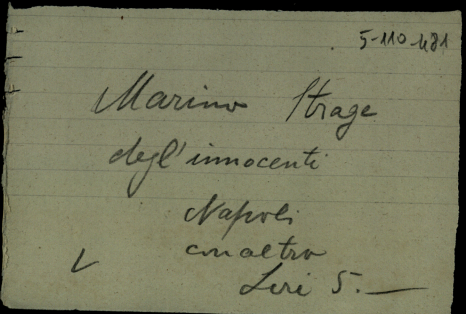 5-110-481
Marino Strage
degl'innocenti
Napoli
con altro
Lire 5.—